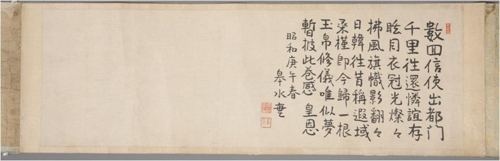 數回信使出都門
千里徃還隣誼存
眩目衣冠光燦々
拂風旗幟影翻々
日韓徃昔稱遐域
桑槿即今歸一根
玉帛修儀唯似夢
暫披此卷感 皇恩
昭和庚午春
皋水